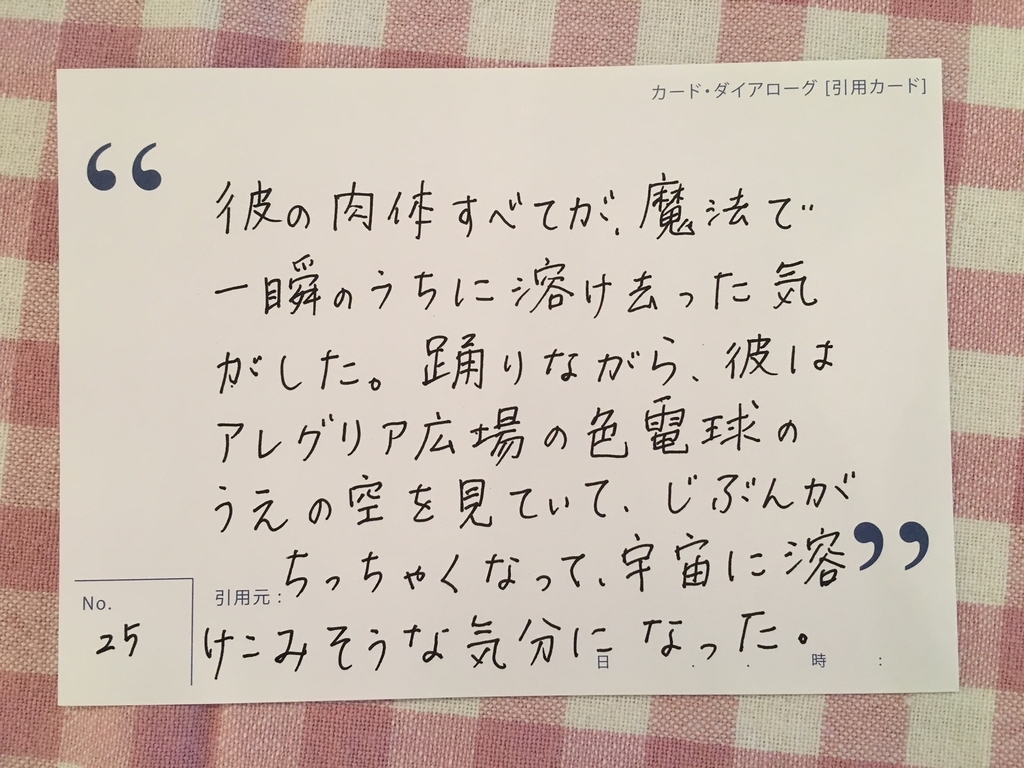 カード・ダイアローグ [引用カード]
“
彼の肉体すべてが、魔法で
一瞬のうちに溶け去った気
がした。踊りながら、彼は
アレグリア広場の色電球の
うえの空を見ていて、じぶんが
ちっちゃくなって、宇宙に溶
”
No.
25
引用元:
けこみそうな気分になった。
日 . . 時 :